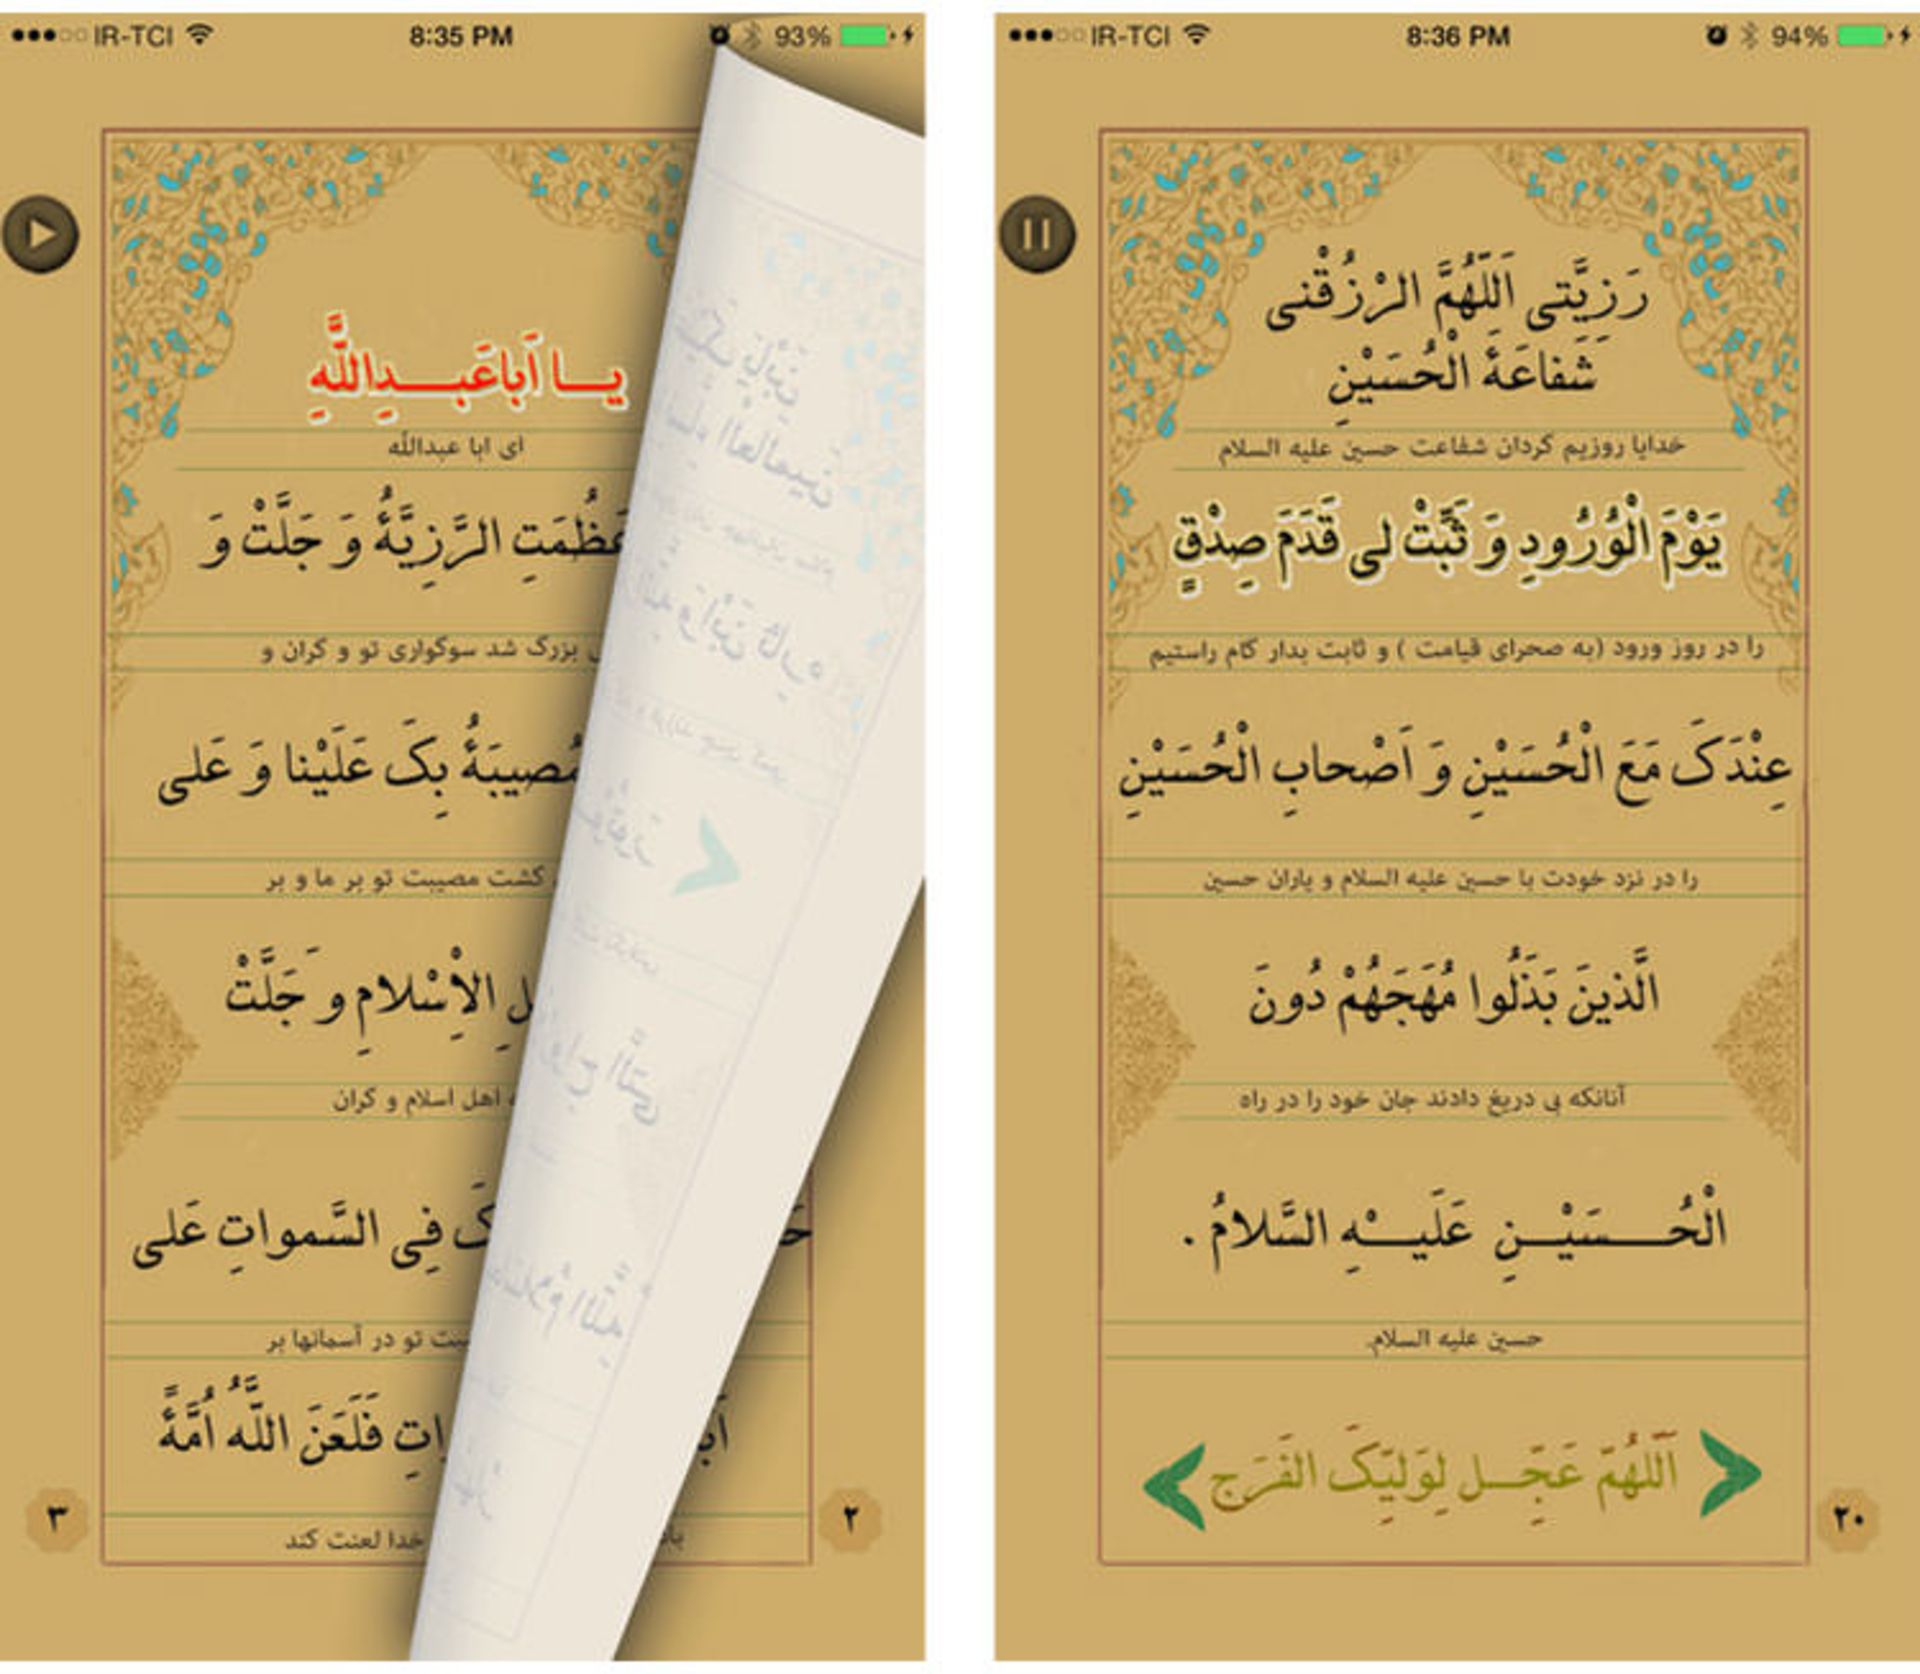 IR-TCI 8:35 PM 93%
يا اَباعَبدِاللَّهِ
ای ابا عبدالله
عَظُمَتِ الرَّزِيَّةُ وَ جَلَّتْ وَ
بزرگ شد سوگواری تو و گران و
مُصيبَةُ بِکَ عَلَيْنا وَ عَلى
گشت مصیبت تو بر ما و بر
الْاِسْلامِ و جَلَّتْ
اهل اسلام و گران
فِى السَّمواتِ عَلى
تو در آسمانها بر
فَلَعَنَ اللَّهُ اُمَّةً
خدا لعنت کند
۳
۲
IR-TCI 8:36 PM 94%
رَزِيَّتى اَللّهُمَّ الرْزُقْنى
شَفاعَةَ الْحُسَيْنِ
خدایا روزیم گردان شفاعت حسین علیه السلام
يَوْمَ الْوُرُودِ وَ ثَبِّتْ لى قَدَمَ صِدْقٍ
را در روز ورود (به صحرای قیامت ) و ثابت بدار گام راستیم
عِنْدَکَ مَعَ الْحُسَيْنِ وَ اَصْحابِ الْحُسَيْنِ
را در نزد خودت با حسین علیه السلام و یاران حسین
الَّذينَ بَذَلُوا مُهَجَهُمْ دُونَ
آنانکه بی دریغ دادند جان خود را در راه
الْحُسَيْنِ عَلَيْهِ السَّلامُ .
حسین علیه السلام.
اَللهُمّ عَجِّل لِوَلیِّکَ الفَرَج
۲۰